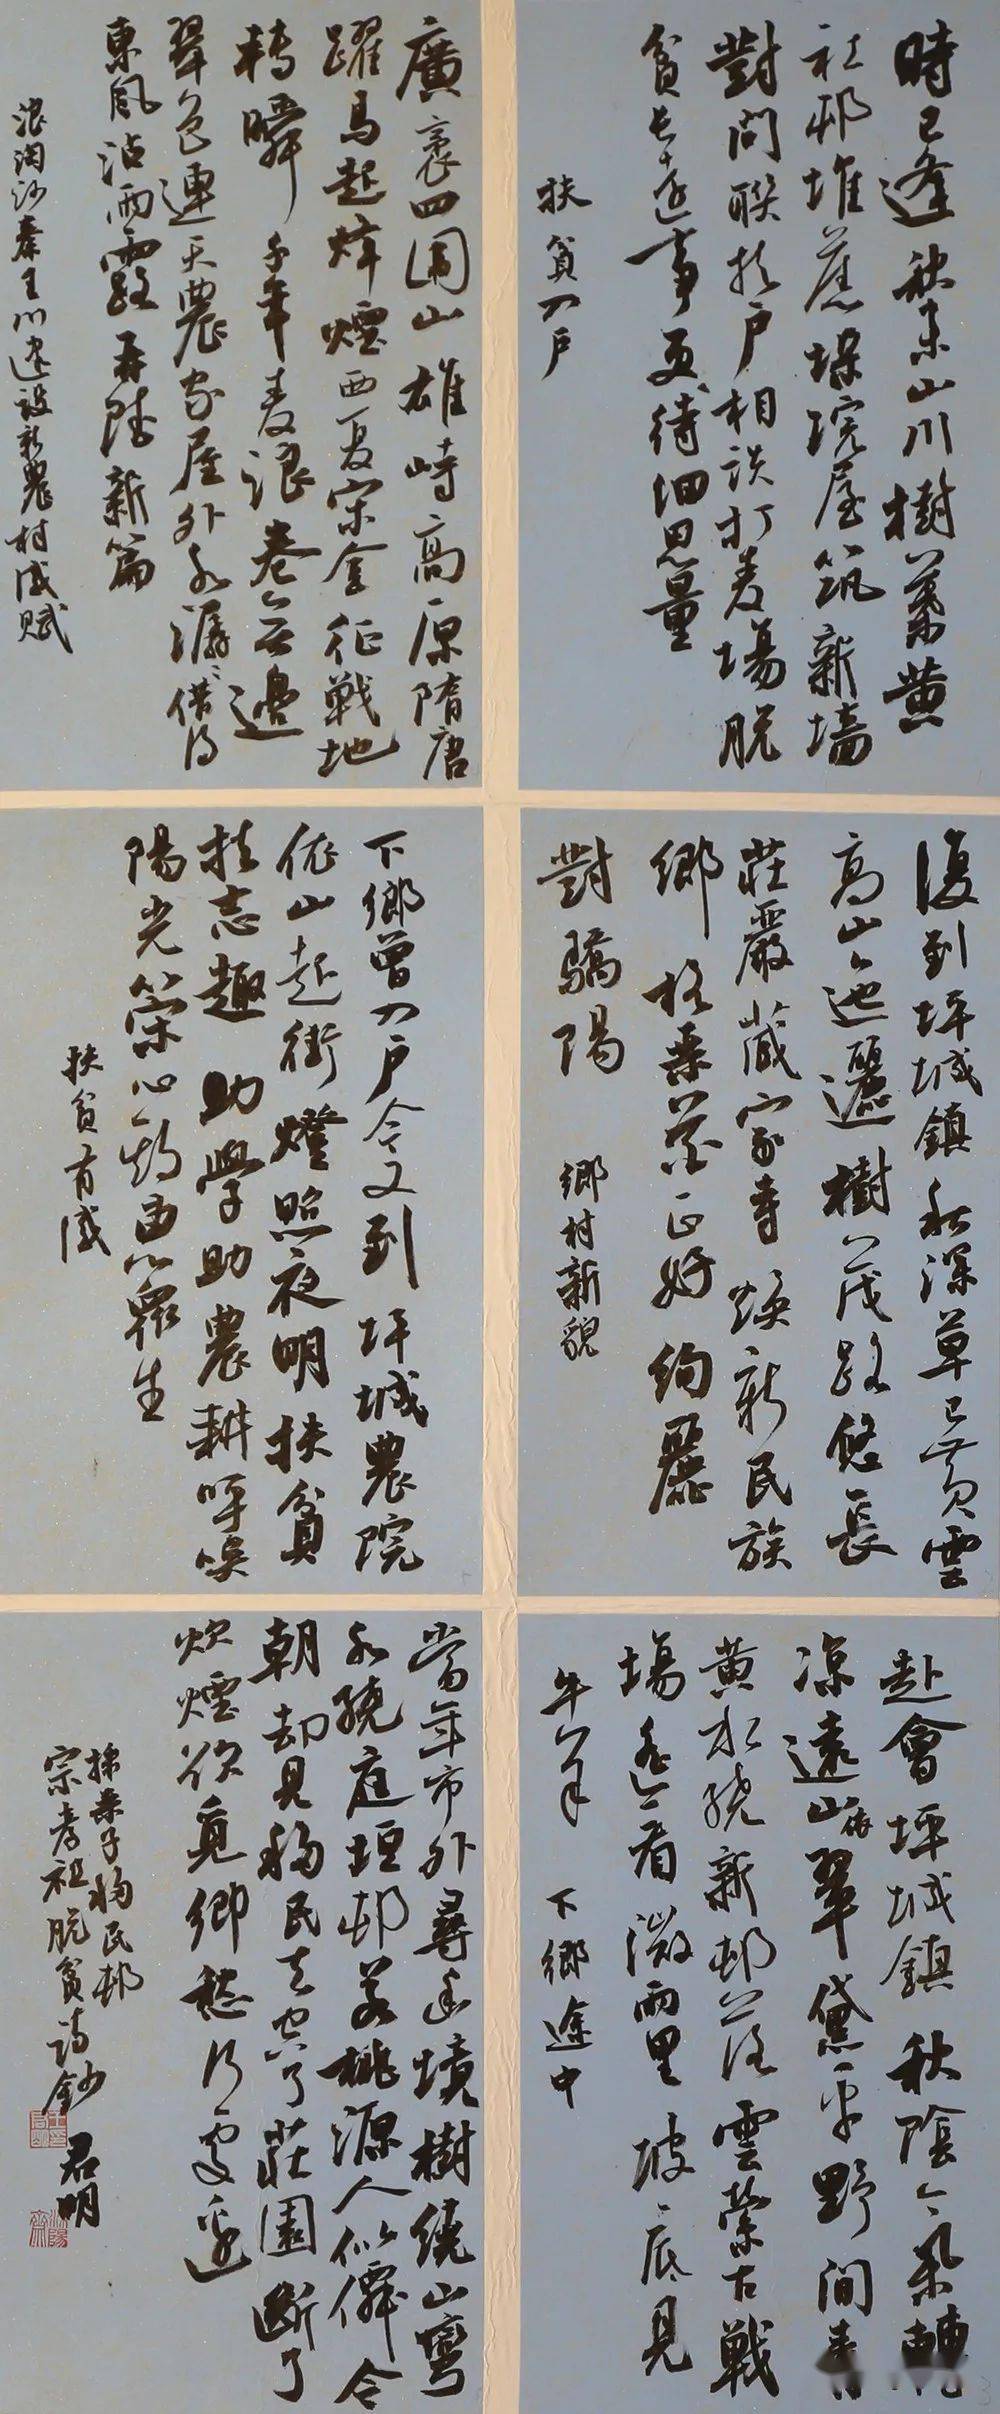 時已逢秋末山川樹葉黄
社邨堆蕉垛院屋筑新墙
對問聯扵户相談打麦場脱
貧長遠事更待細思量
扶貧入户
廣袤四圍山雄峙高原隋唐
躍馬起烽煙西夏宋金征戰地
轉瞬千年麦浪卷無邊
翠色連天農家屋外水潺潺借得
東風沾雨露再賦新篇
浪淘沙秦王川建設新農村感賦
復到坪城鎮秋深草已黄雲
高山迤邐樹茂路悠長
莊嚴藏家寺焕新民族
鄉格桑花正好絢麗
對驕陽
鄉村新貌
下鄉曾入户今又到坪城農院
依山起街燈照夜明扶貧
扶志趣助學助農耕呼唤
陽光榮心
生
扶貧有感
赴會坪城鎮秋陰今氣轉
凉遠山依翠黛平野間青
黄水繞新邨落雲縈古戰
場遥看微雨里坡底見
牛羊
下鄉途中
當年市外尋幽境樹繞山彎
水繞庭垣邨若桃源人似僊今
朝却見移民去空了莊園断了
炊煙欲覓鄉愁何處邊
採桑子移民邨
宗孝祖脱貧詩鈔
君明